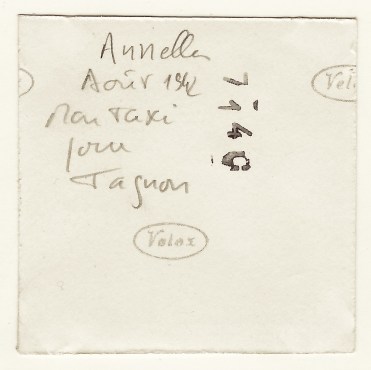 Annelles
Août 1942
Mon Taxi
pour
Tagnon
7140
Velox
Velox